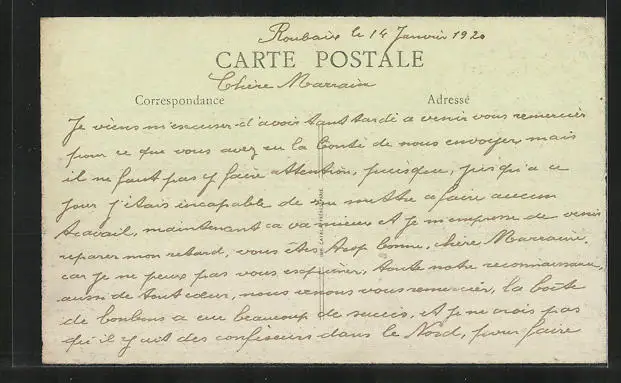 Roubaix le 14 Janvier 1920
CARTE POSTALE
Chère Marraine
Correspondance
Adressé
Je viens m'excuser d'avois tant tardé a venir vous remercier
pour ce que vous avez eu la bonté de nous envoyer, mais
il ne faut pas y faire attention, puisque, jusqu'a ce
jour j'étais incapable de me mettre a faire aucun
travail, maintenant ca va mieux et je m'empresse de venir
reparer mon retard, vous êtes trop bonne, chère Marraine.
car je ne peux pas vous exprimer, toute notre reconnaissance,
aussi de tout cœur, nous venons vous remercier, la boîte
de bonbons a eu beaucoup de succès, et je ne crois pas
qu'il y ait des confiseurs dans le Nord, pour faire